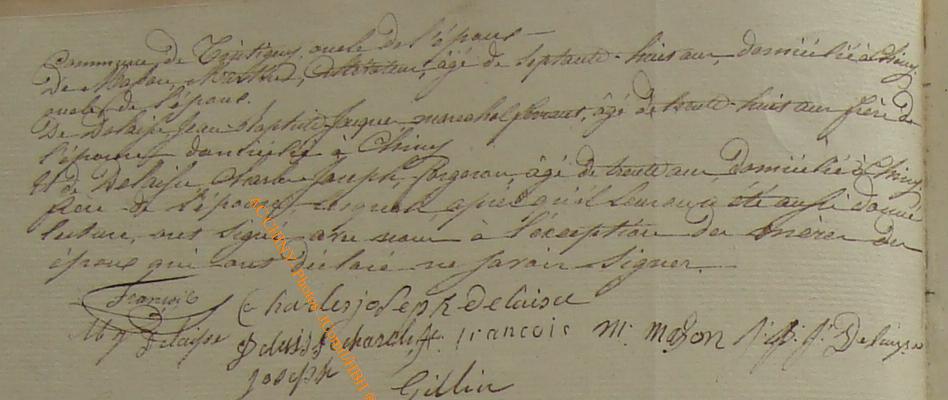 Commune de Tintigny, oncle de l'épouse
De Mahon, Cultivateur, âgé de septante-huit ans, domicilié à Chiny
oncle de l'épouse.
De Delaisse Jean-Baptiste Jacques marechal ferrant, âgé de trente-huit ans frère de
l'épouse domicilié à Chiny
Et de Delaisse Charles Joseph, forgeron âgé de trente ans, domicilié à Chiny
frère de l'épouse, lesquels après qu'il leur en a été aussi donné
lecture, ont signé avec nous à l'exception des mères des
époux qui ont déclaré ne savoir signer.
François Charles joseph Delaisse
Delaisse françois M. Mahon J. B. J. Delaisse
Joseph Gillin